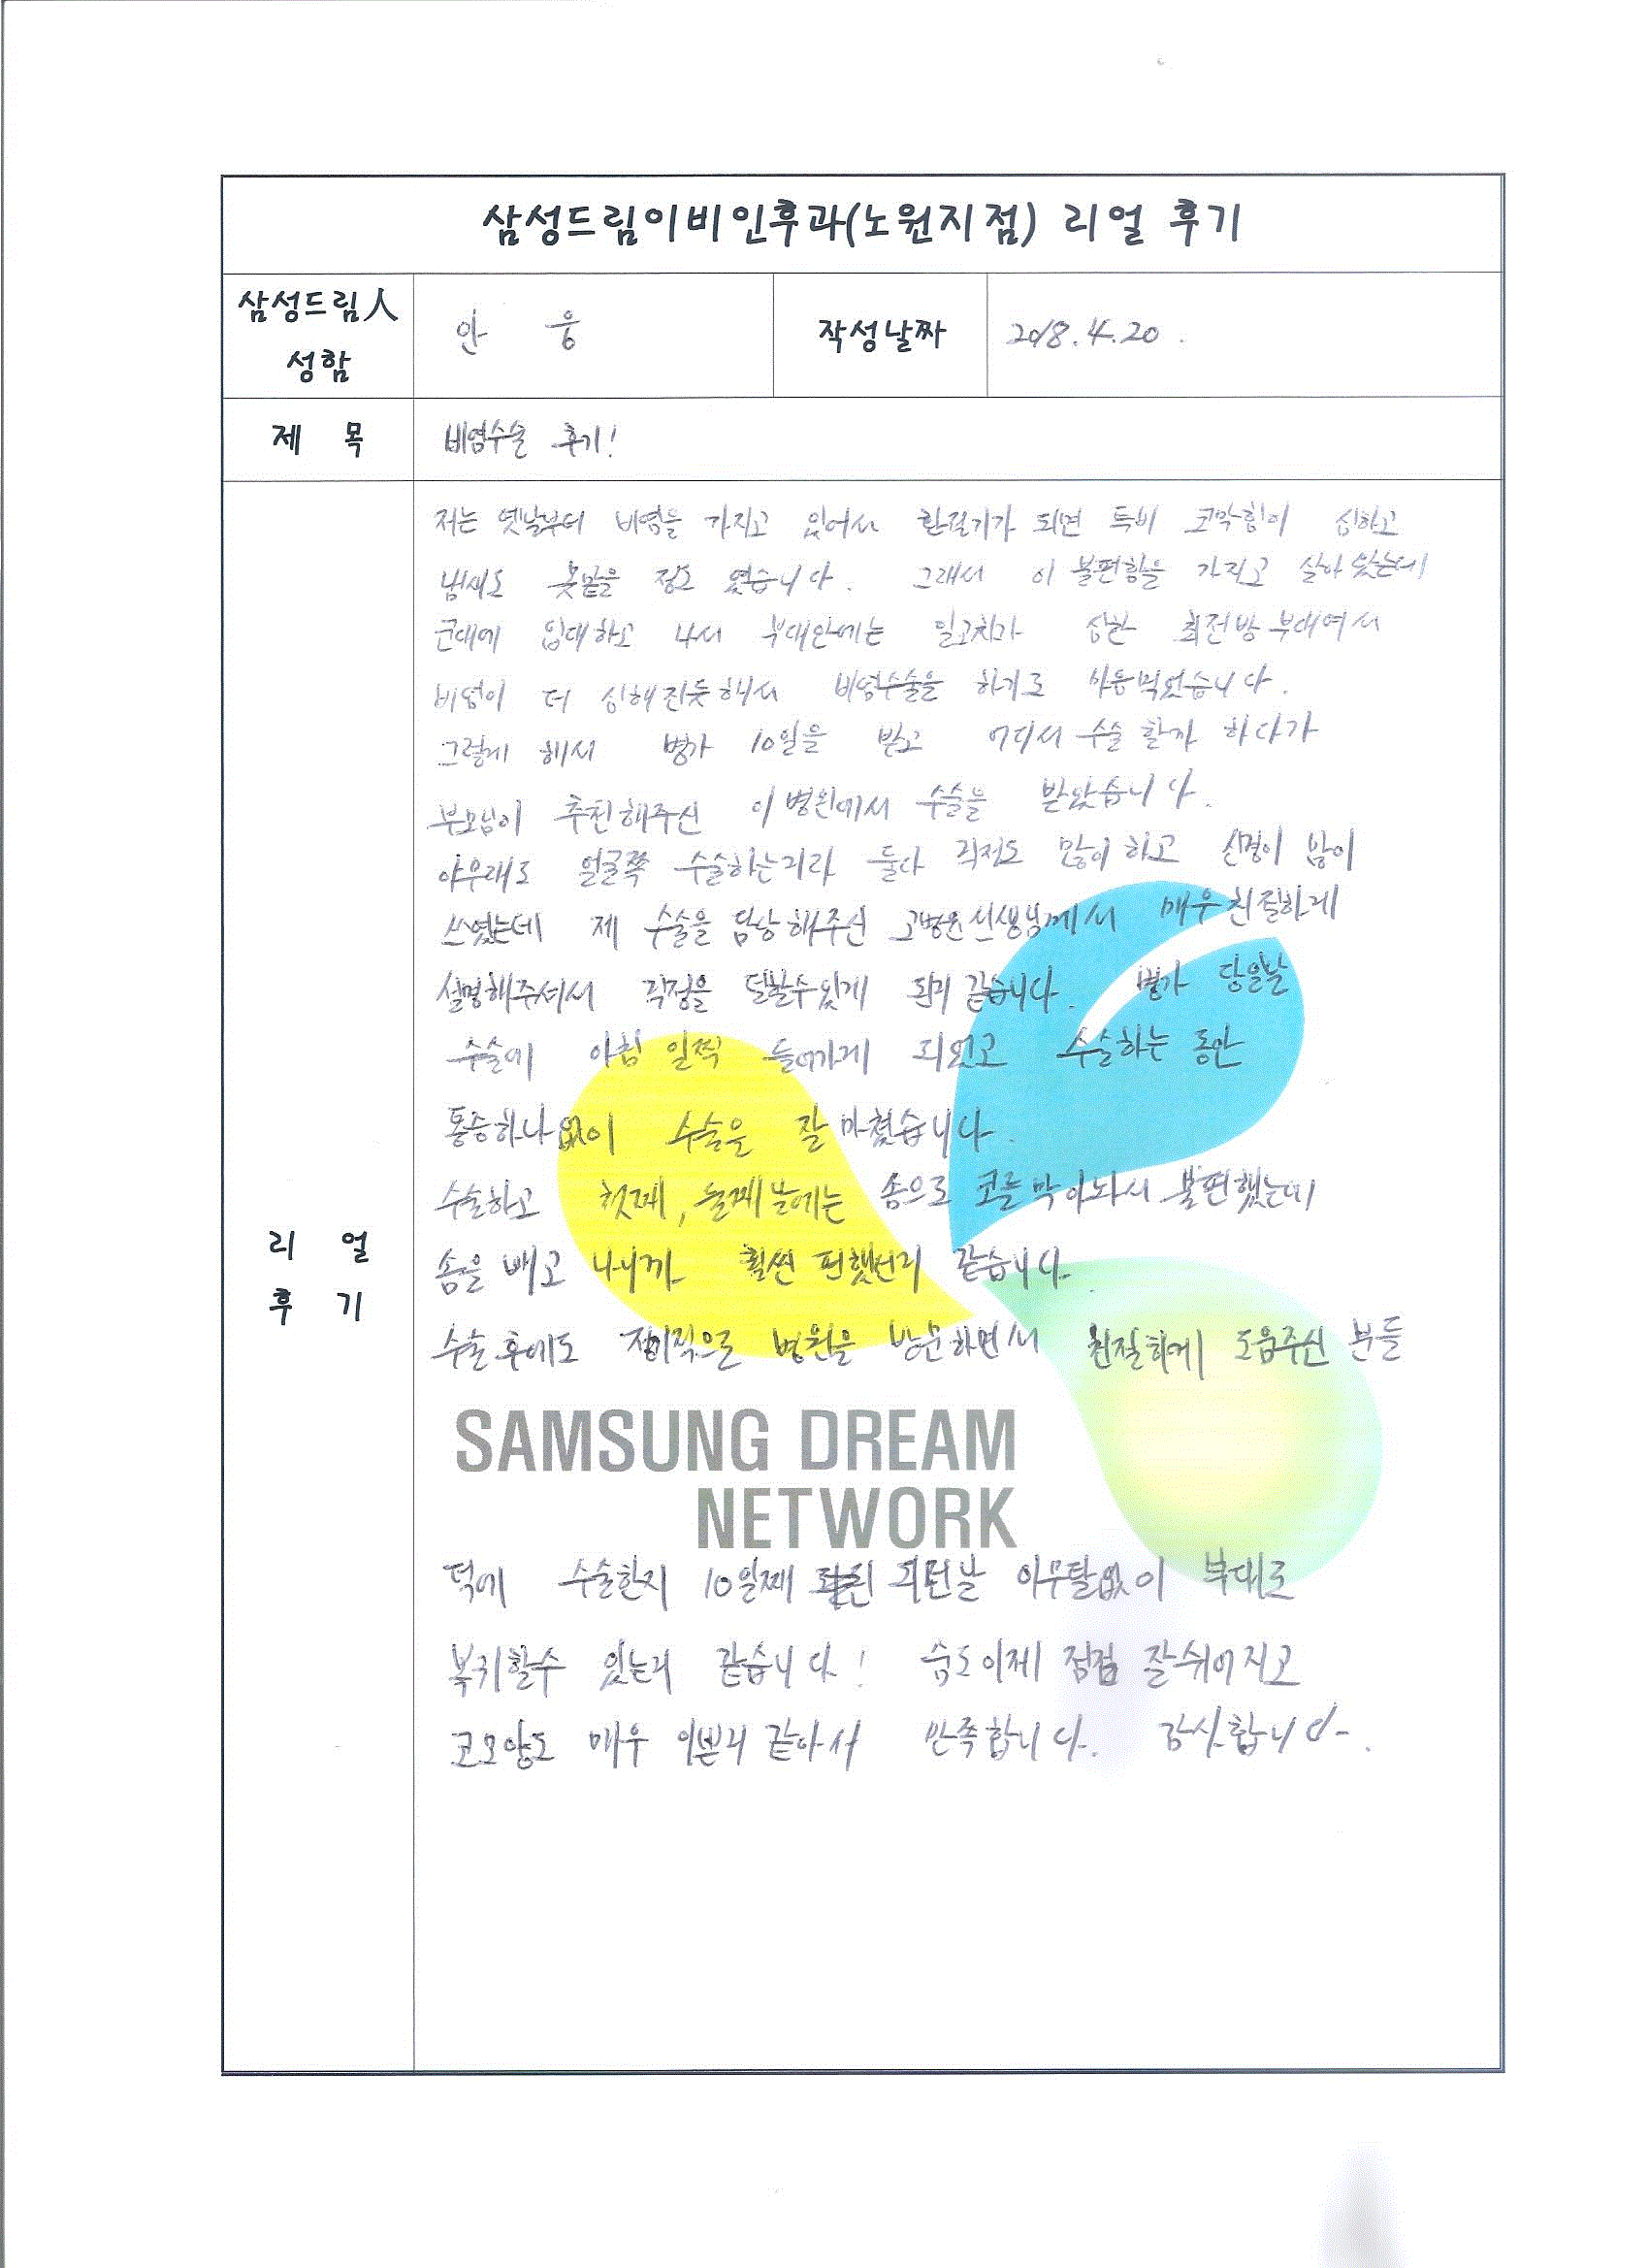 삼성드림이비인후과(노원지점) 리얼 후기
삼성드림人
성함
안 웅
작성날짜
2018.4.20.
제 목
비염수술 후기!
리 얼
후 기
저는 옛날부터 비염을 가지고 있어서 환절기가 되면 특비 코막힘이 심하고
냄새도 못맡을 정도 였습니다. 그래서 이 불편함을 가지고 살아 왔는데
군대에 입대하고 나서 부대안에는 일교차가 심한 최전방부대여서
비염이 더 심해진듯해서 비염수술을 하기로 마음먹었습니다.
그렇게 해서 병가 10일을 받고 어디서 수술 할까 하다가
부모님이 추천해주신 이 병원에서 수술을 받았습니다.
아무래도 얼굴쪽 수술하는거라 둘다 걱정도 많이 하고 신경이 많이
쓰였는데 제 수술을 담당해주신 선생님께서 매우 친절하게
설명해주셔서 걱정을 덜할수있게 된거 같습니다. 병가 당일날
수술에 아침 일찍 들어가게 되었고 수술하는 동안
통증하나없이 수술은 잘 마쳤습니다.
수술하고 첫째, 둘째날에는 솜으로 코를 막아놔서 불편했는데
솜을 빼고 나니까 훨씬 편했던거 같습니다.
수술후에도 병원을 방문하면서 친절하게 도움주신 분들
SAMSUNG DREAM
NETWORK
덕에 수술한지 10일째 아무탈없이 부대로
복귀할수 있는거 같습니다! 숨도이제 점점 잘쉬어지고
코모양도 매우 이쁜거 같아서 만족합니다. 감사합니다.